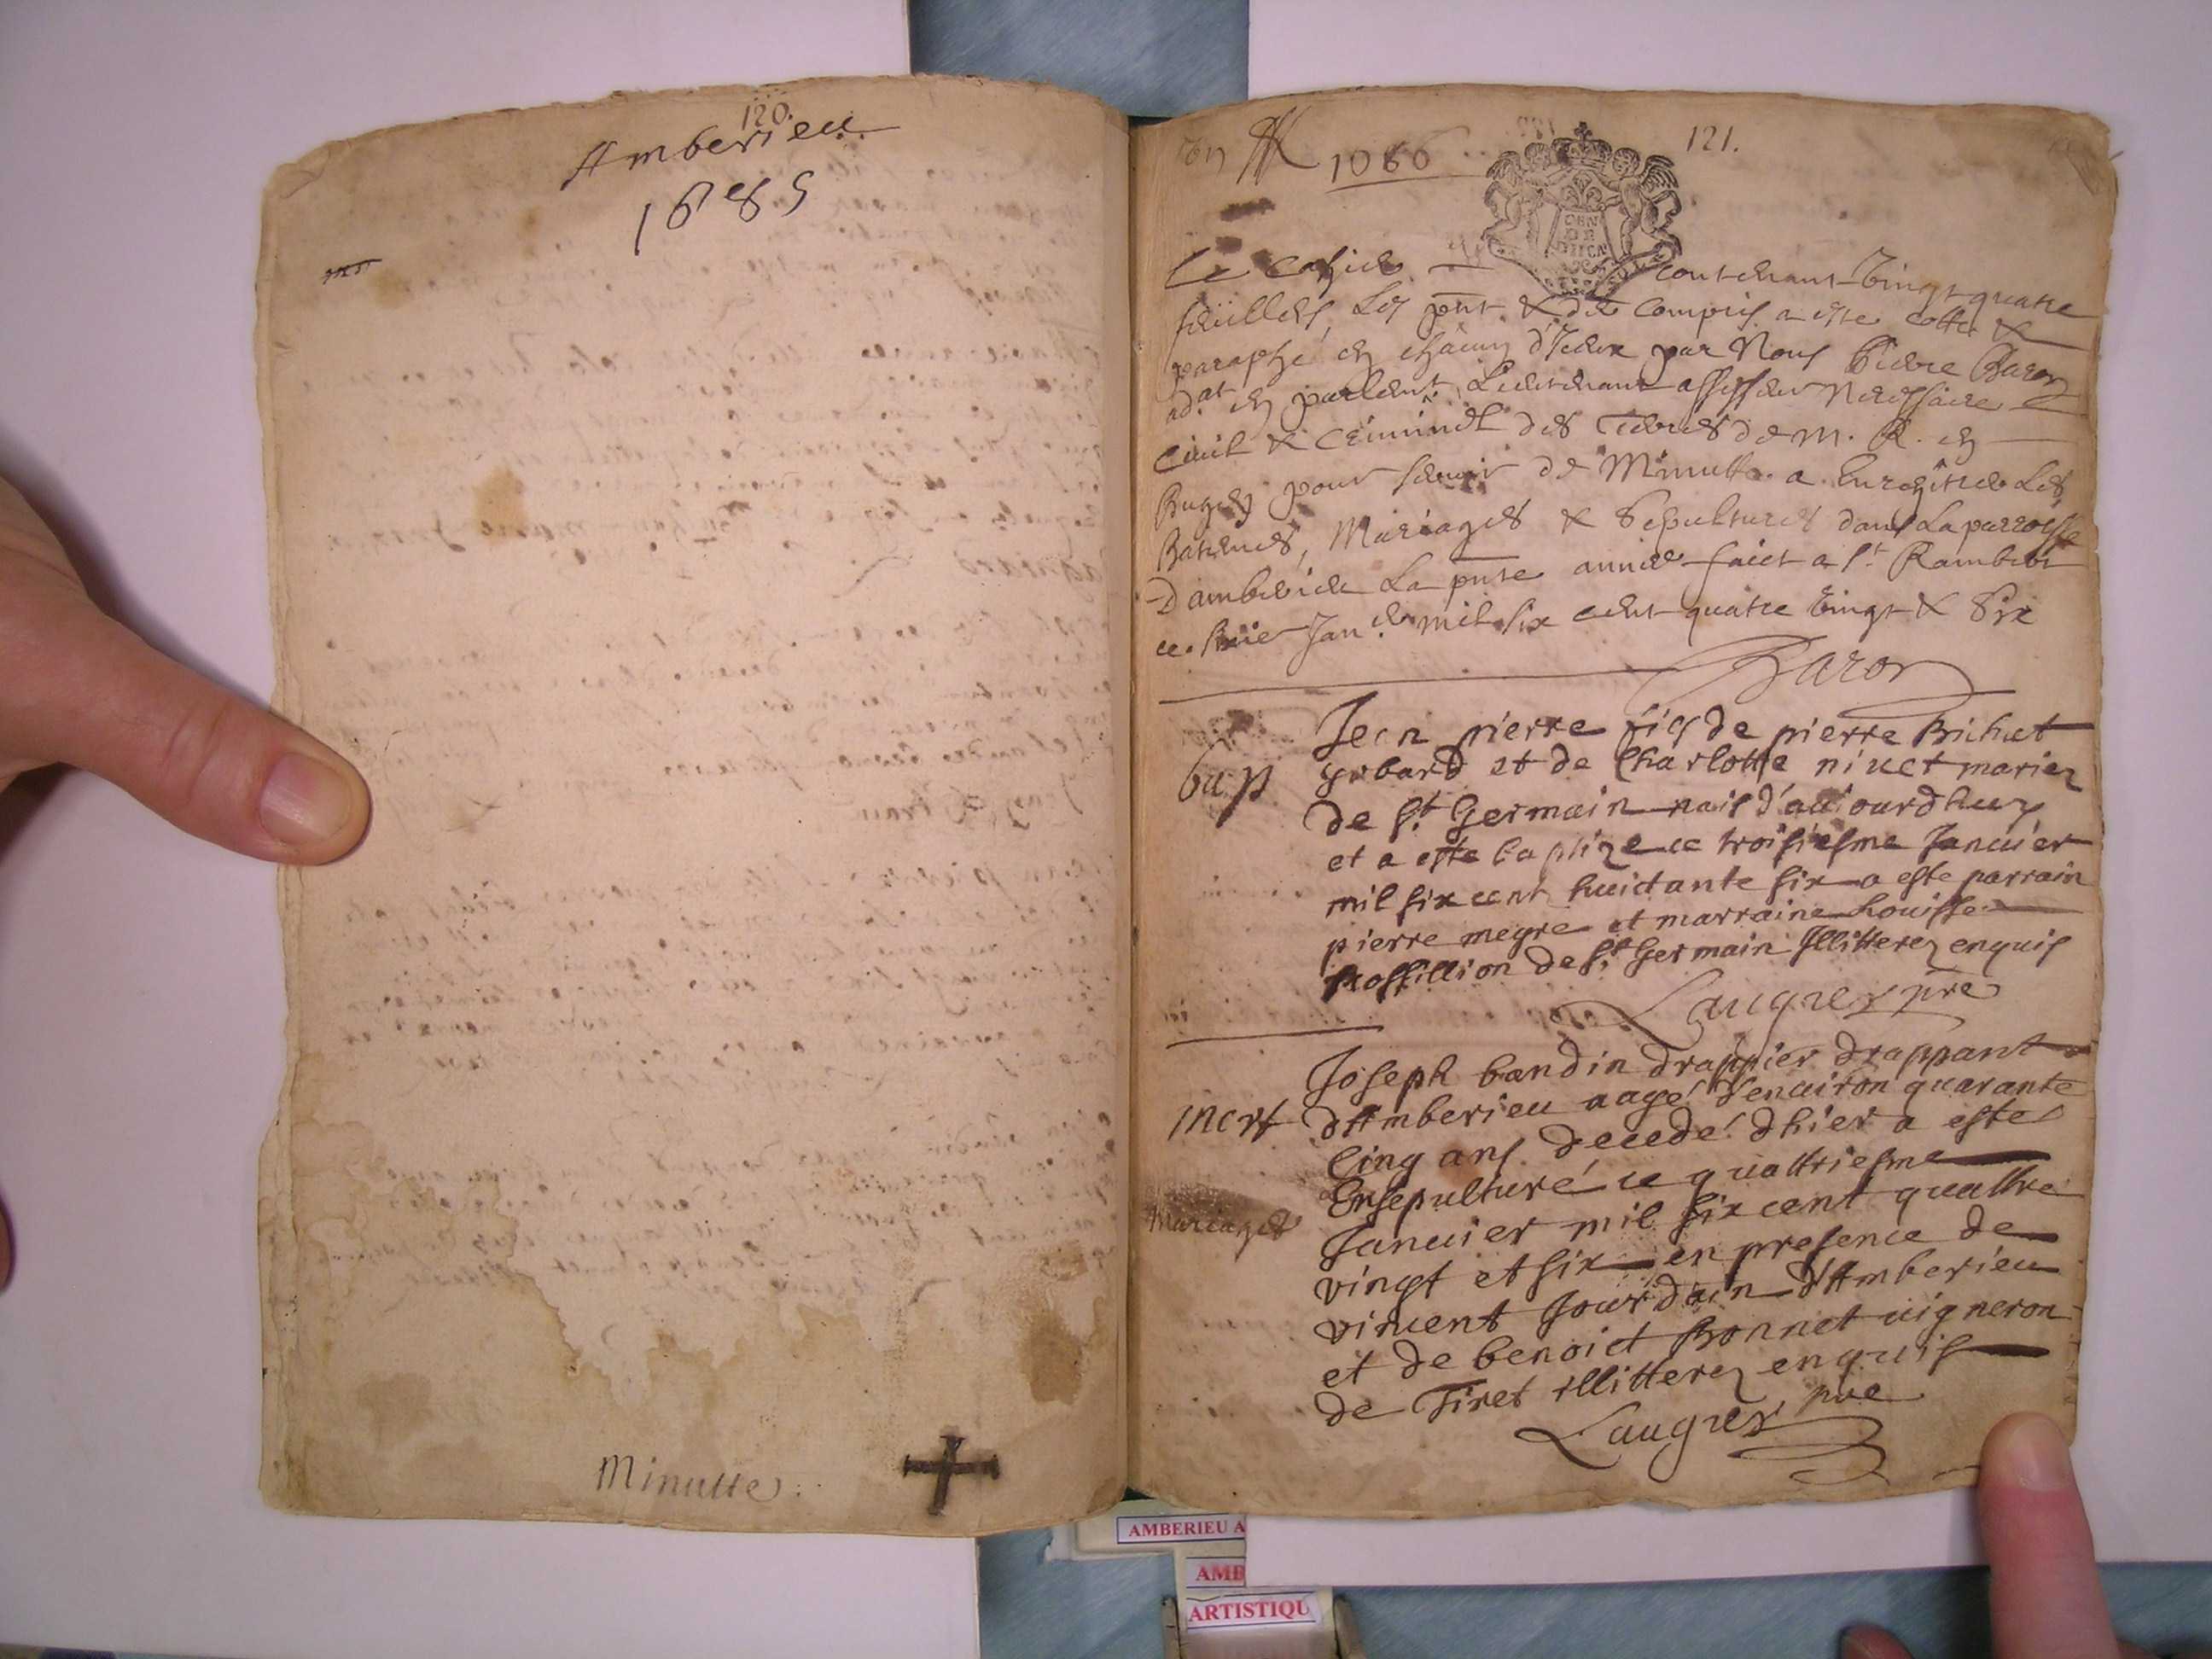 120.
Amberieu
1685
Minutte
1686
121.
GEN
DE
Le cahier contenant vingt quatre
feuillets, Les pnt & der compris a este cotté &
paraphé en chacun d'Iceux par Nous Pierre Baron
adat en parlemt, Lieutenant assesseur Necessaire
Civil & Criminel des Terres de M. R. en
Bugey pour servir de Minutte a Enregistrer Les
Batemes, Mariages & Sepultures dans La parroisse
Damberieu La pnte année faict a St Rambert
ce Janer mil six cent quatre vingt & six
Baron
bap
Jean pierre fils de pierre Bichet
gobard et de Charlotte nivet mariez
de St Germain nais d'auiourdhuy
et a este baptize ce troisiesme Januier
mil six cent huictante six a este parrain
pierre megre et marraine Louisse
Rossillion de St Germain Illitterez enquis
Laugrer pre
mort
Joseph bandin drappier drappant
dAmberieu aagé d'enuiron quarante
Cinq ans decedé dhier a este
Ensepulturé ce quattriesme
Mariages
Januier mil six cent quattre
vingt et six en presence de
vincent Jourdain dAmberieu
et de benoict Bonnet uigneron
de Tiret illitterez enquis
Laugrer pre
AMBERIEU A
AMB
ARTISTIQU